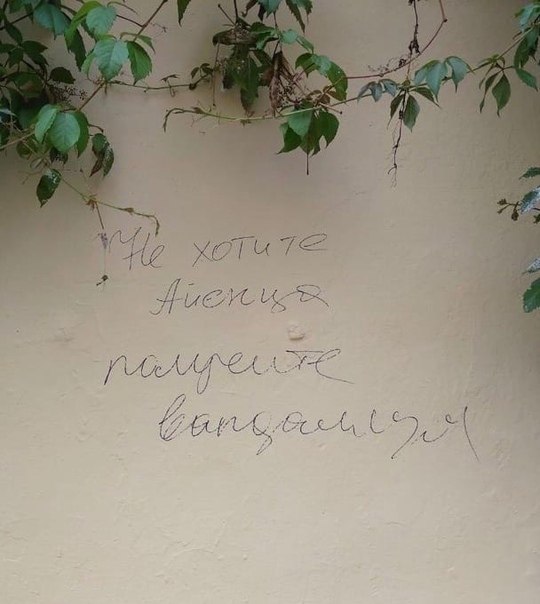 Не хотите
Айвенца
получите
вандализм